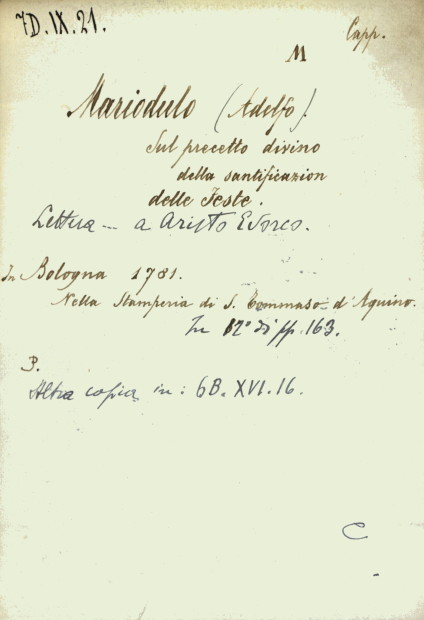 7D.IX.21.
Capp.
M
Mariodulo (Adelfo).
Sul precetto divino
della santificazion
delle Feste.
Lettera — a Aristo
In Bologna 1781.
Nella Stamperia di S. Tommaso d'Aquino.
In 12° di pp. 163.
3.
Altra copia in: 6B. XVI. 16.
C